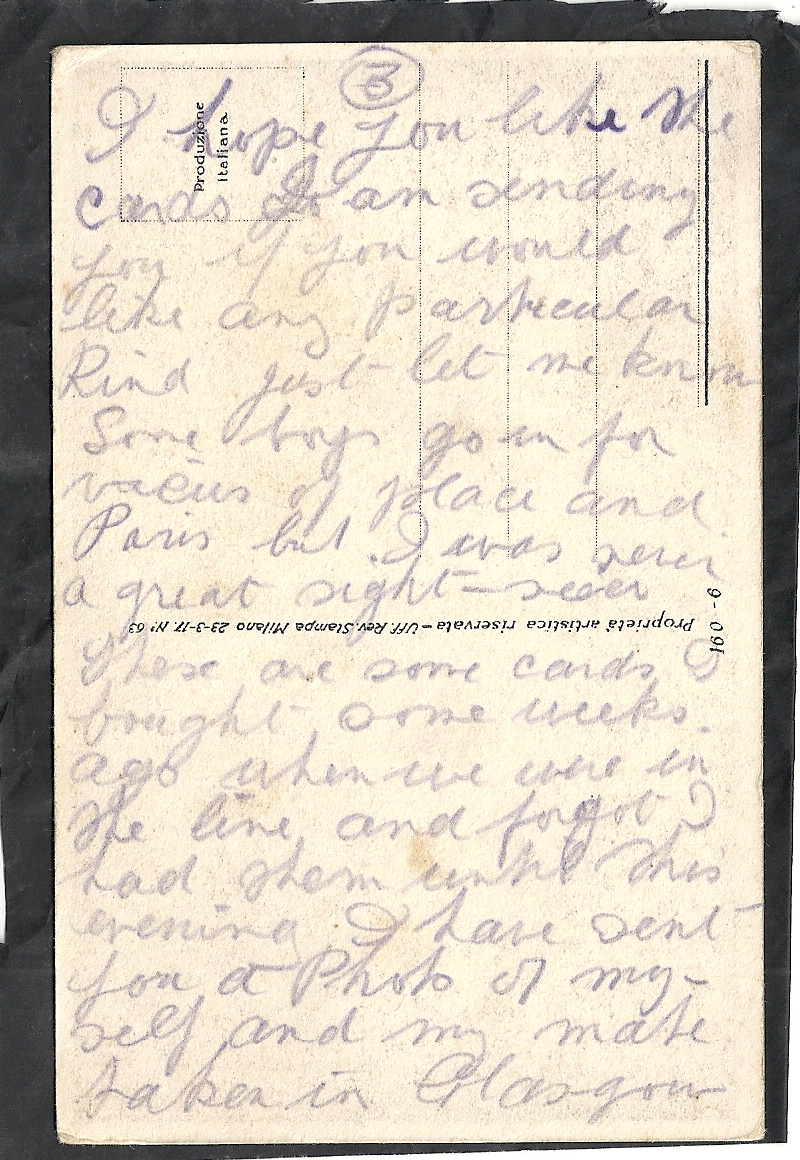 3
Produzione
Italiana.
I hope you like the
cards I am sending
you if you would
like any particular
Kind just let me know
Some boys go in for
vieius of place and
Paris but I was never
a great sight-seeer
Proprietà artistica riservata - Uff. Rev. Stampa Milano 23-3-17. N° 63
160 - 6
These are some cards I
bought some weeks
ago when we were in
the line and forgot I
had them until this
evening I have sent
you a Photo of my-
self and my mate
taken in Glasgow